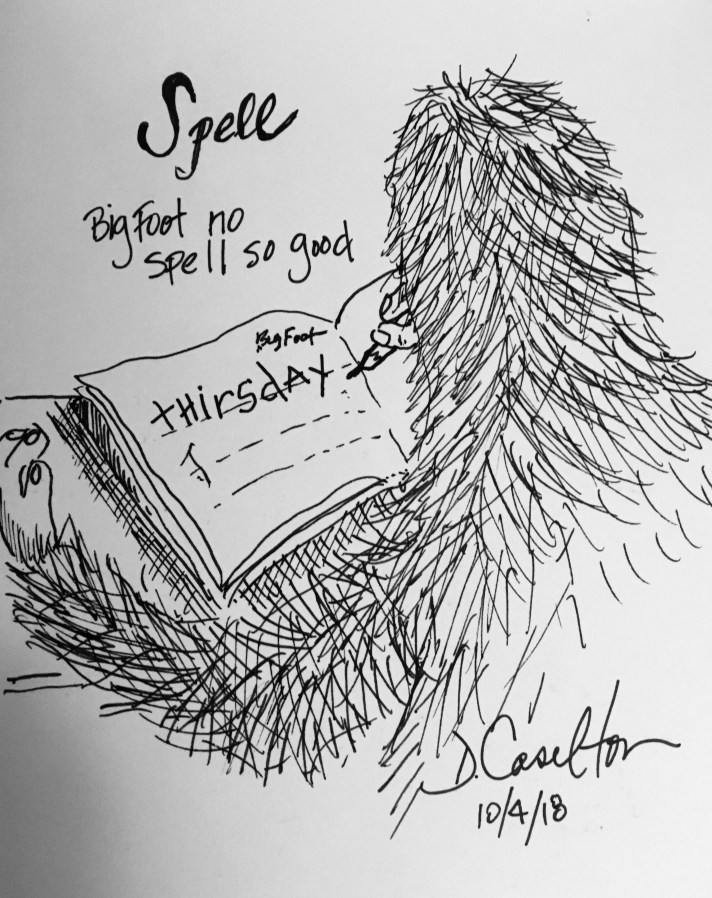 Spell
BigFoot no
spell so good
BigFoot
tHirsdAY
D. Caselton
10/4/18